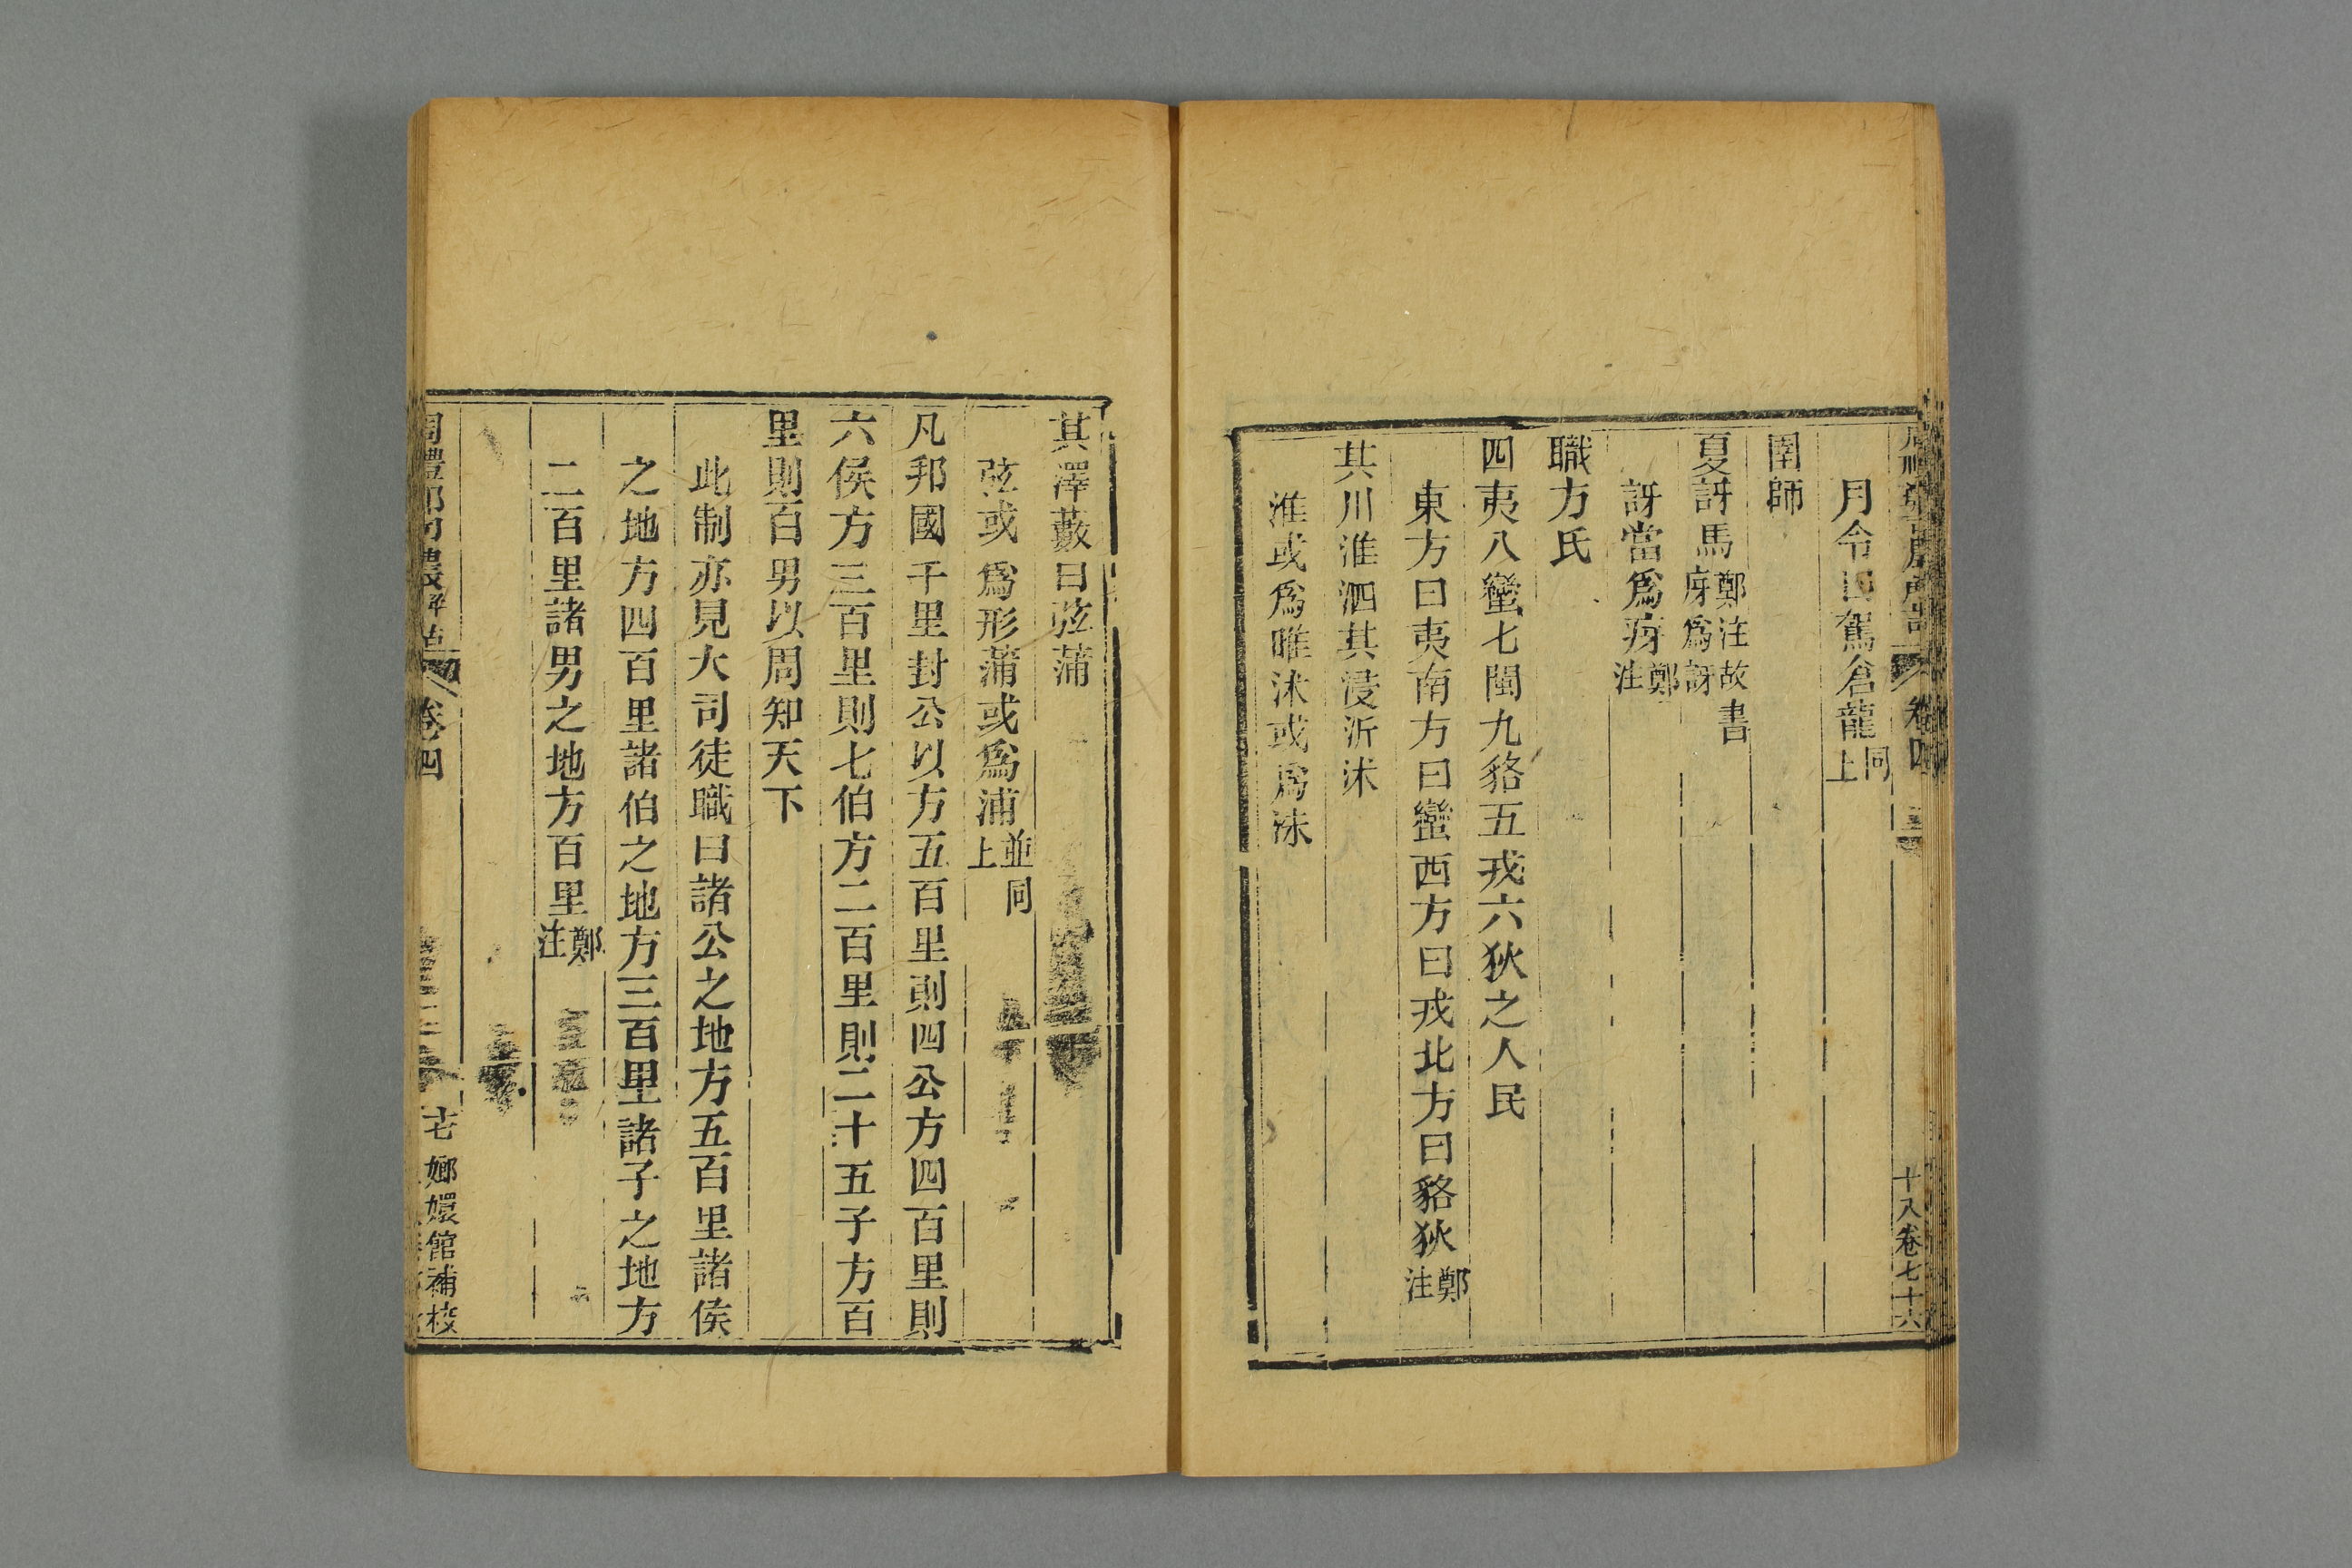 月令曰駕倉龍同上
圉師
夏訝馬鄭注故書庌爲訝
訝當爲庌鄭注
職方氏
四夷八蠻七閩九貉五戎六狄之人民
東方曰夷南方曰蠻西方曰戎北方曰貉狄鄭注
其川淮泗其浸沂沭
淮或爲睢沭或爲洙
十八卷七十六
其澤藪曰弦蒲
弦或爲形蒲或爲浦並同上
凡邦國千里封公以方五百里則四公方四百里則
六侯方三百里則七伯方二百里則二十五子方百
里則百男以周知天下
此制亦見大司徒職曰諸公之地方五百里諸侯
之地方四百里諸伯之地方三百里諸子之地方
二百里諸男之地方百里鄭注
周禮鄭司農解詁 卷四 十七 嫏嬛館補校